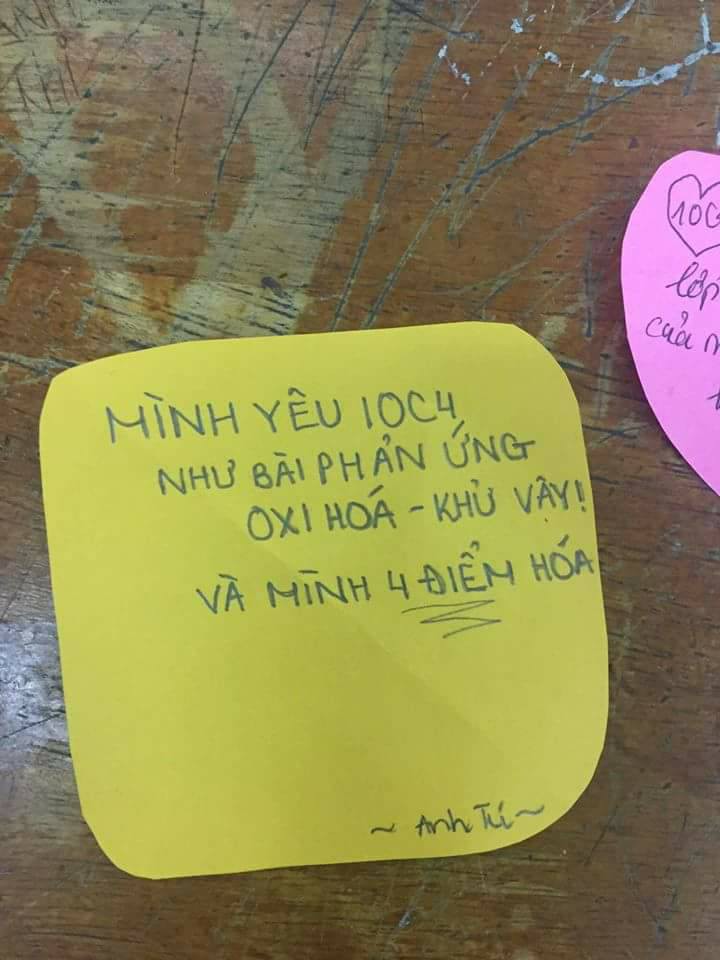 MÌNH YÊU 10C4
NHƯ BÀI PHẢN ỨNG
OXI HOÁ - KHỬ VẬY!
VÀ MÌNH 4 ĐIỂM HÓA
~ Anh Tú ~
10C
lớp
của